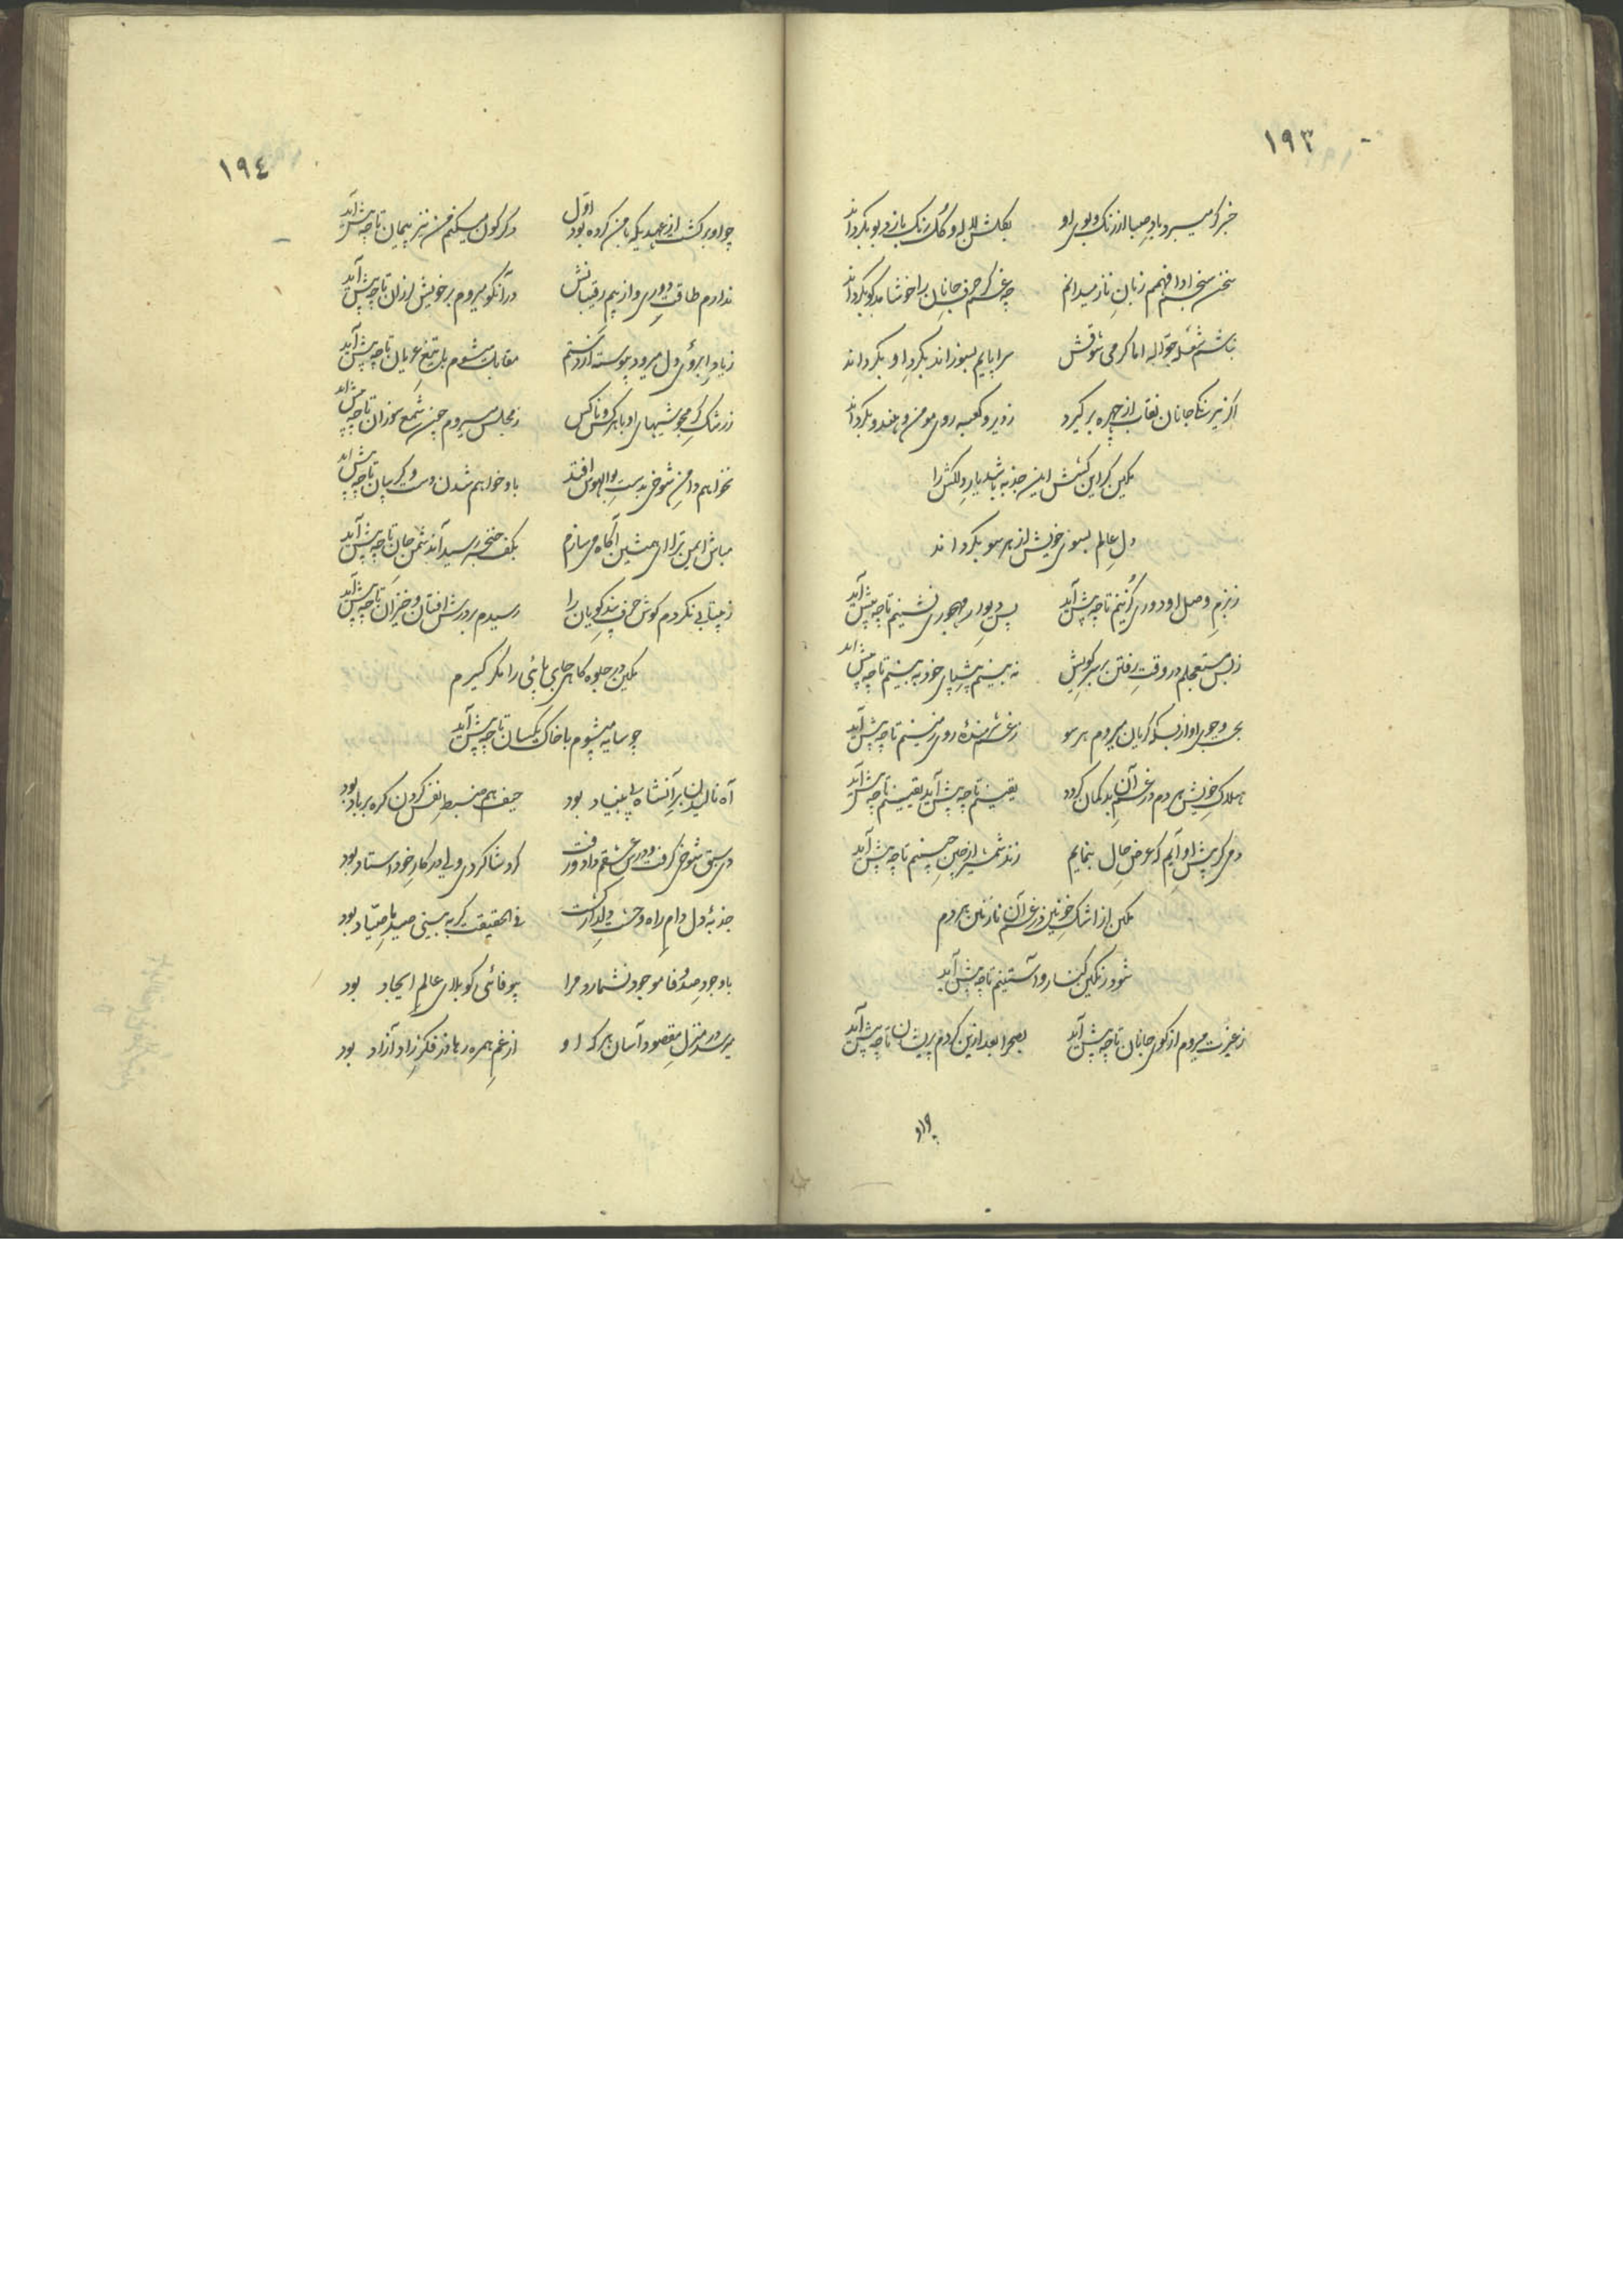 ١٩٣
خبر گر میبرد باد صبا از رنگ و بوی او بگلشن لاله و گل رنگ بازی رو بگرداند
سخن سنجم ادا فهمم زبان ناز میدانم چه غم گر حرف جانان را خوشامدگو بگرداند
نباشم شعله جواله اما گرمی شوقش سراپایم بسوزاند بگرد او بگرداند
اگر نیرنگ جانان نقاب از چهره برگیرد ز دیر و کعبه روی مومن و هندو بگرداند
مکین گر این کشش این جذبه باشد یار دلکش را
دل عالم بسوی خویش از هر سو بگرداند
ز بزم وصل او دوری گزینم تا چه پیش آید پس دیوار مهجوری نشینم تا چه پیش آید
ز بس مستعجلم در وقت رفتن بر سر کویش نه بینم پیش پای خود به بینم تا چه پیش آید
بجست و جوی او از بسکه گریان میروم هر سو ز غم شرمنده روی زمینم تا چه پیش آید
هلاک خویش بردم در غم آن بدگمان کردد یقینم تا چه پیش آید یقینم تا چه پیش آید
دمی کز پیش او آیم که عرض حال بنمایم زند شمشیر از چین جبینم تا چه پیش آید
مکین از اشک خونین در غم آن نازنین بردم
شود رنگین کنار و آستینم تا چه پیش آید
ز غیرت میروم از کوی جانان تا چه پیش آید بصحرا بعد ازین گردم پریشان تا چه پیش آید
چو او
١٩٤
چو او برگشت از عهدیکه با من کرده بود اول دگرگون میکنم من نیز پیمان تا چه پیش آید
ندارم طاقت دوری و از بیم رقیبانش در آن کو میروم بر خویش لرزان تا چه پیش آید
ز یاد ابروی دل میرود پیوسته از دستم مقابل میشوم با تیغ عریان تا چه پیش آید
ز رشک گرمجوشیهای او با هر کس و ناکس ز مجلس میروم چون شمع سوزان تا چه پیش آید
نخواهم دامن شوخی بدست بوالهوس افتد باو خواهم شدن دست و گریبان تا چه پیش آید
مباش ایمن ترا ای همنشین آگاه می سازم بکف خنجر رسید آن دشمن جان تا چه پیش آید
ز بیتابی نکردم گوش حرف پندگویان را رسیدم بر درش افتان و خیزان تا چه پیش آید
مکین در جلوه گاهی جای پائی را مگر گیرم
چو سایه میشوم با خاک یکسان تا چه پیش آید
آه نالیدن بر آن شاه بنیاد بود حیف هم ضبط نفس کردن گره بر باد بود
سبق شوخی گرفت و درس عشقم داد و رفت کرد شاگردی ولی در کار خود استاد بود
جذبهٔ دل دام راه وحشت دلدار گشت فی الحقیقت گر به بینی صید ما صیاد بود
باوجود صد وفا موجود نشمارد مرا بیوفائی کو بلای عالم ایجاد بود
میرسد در منزل مقصود آسان هر که او از غم همره رها وز فکر زاد آزاد بود